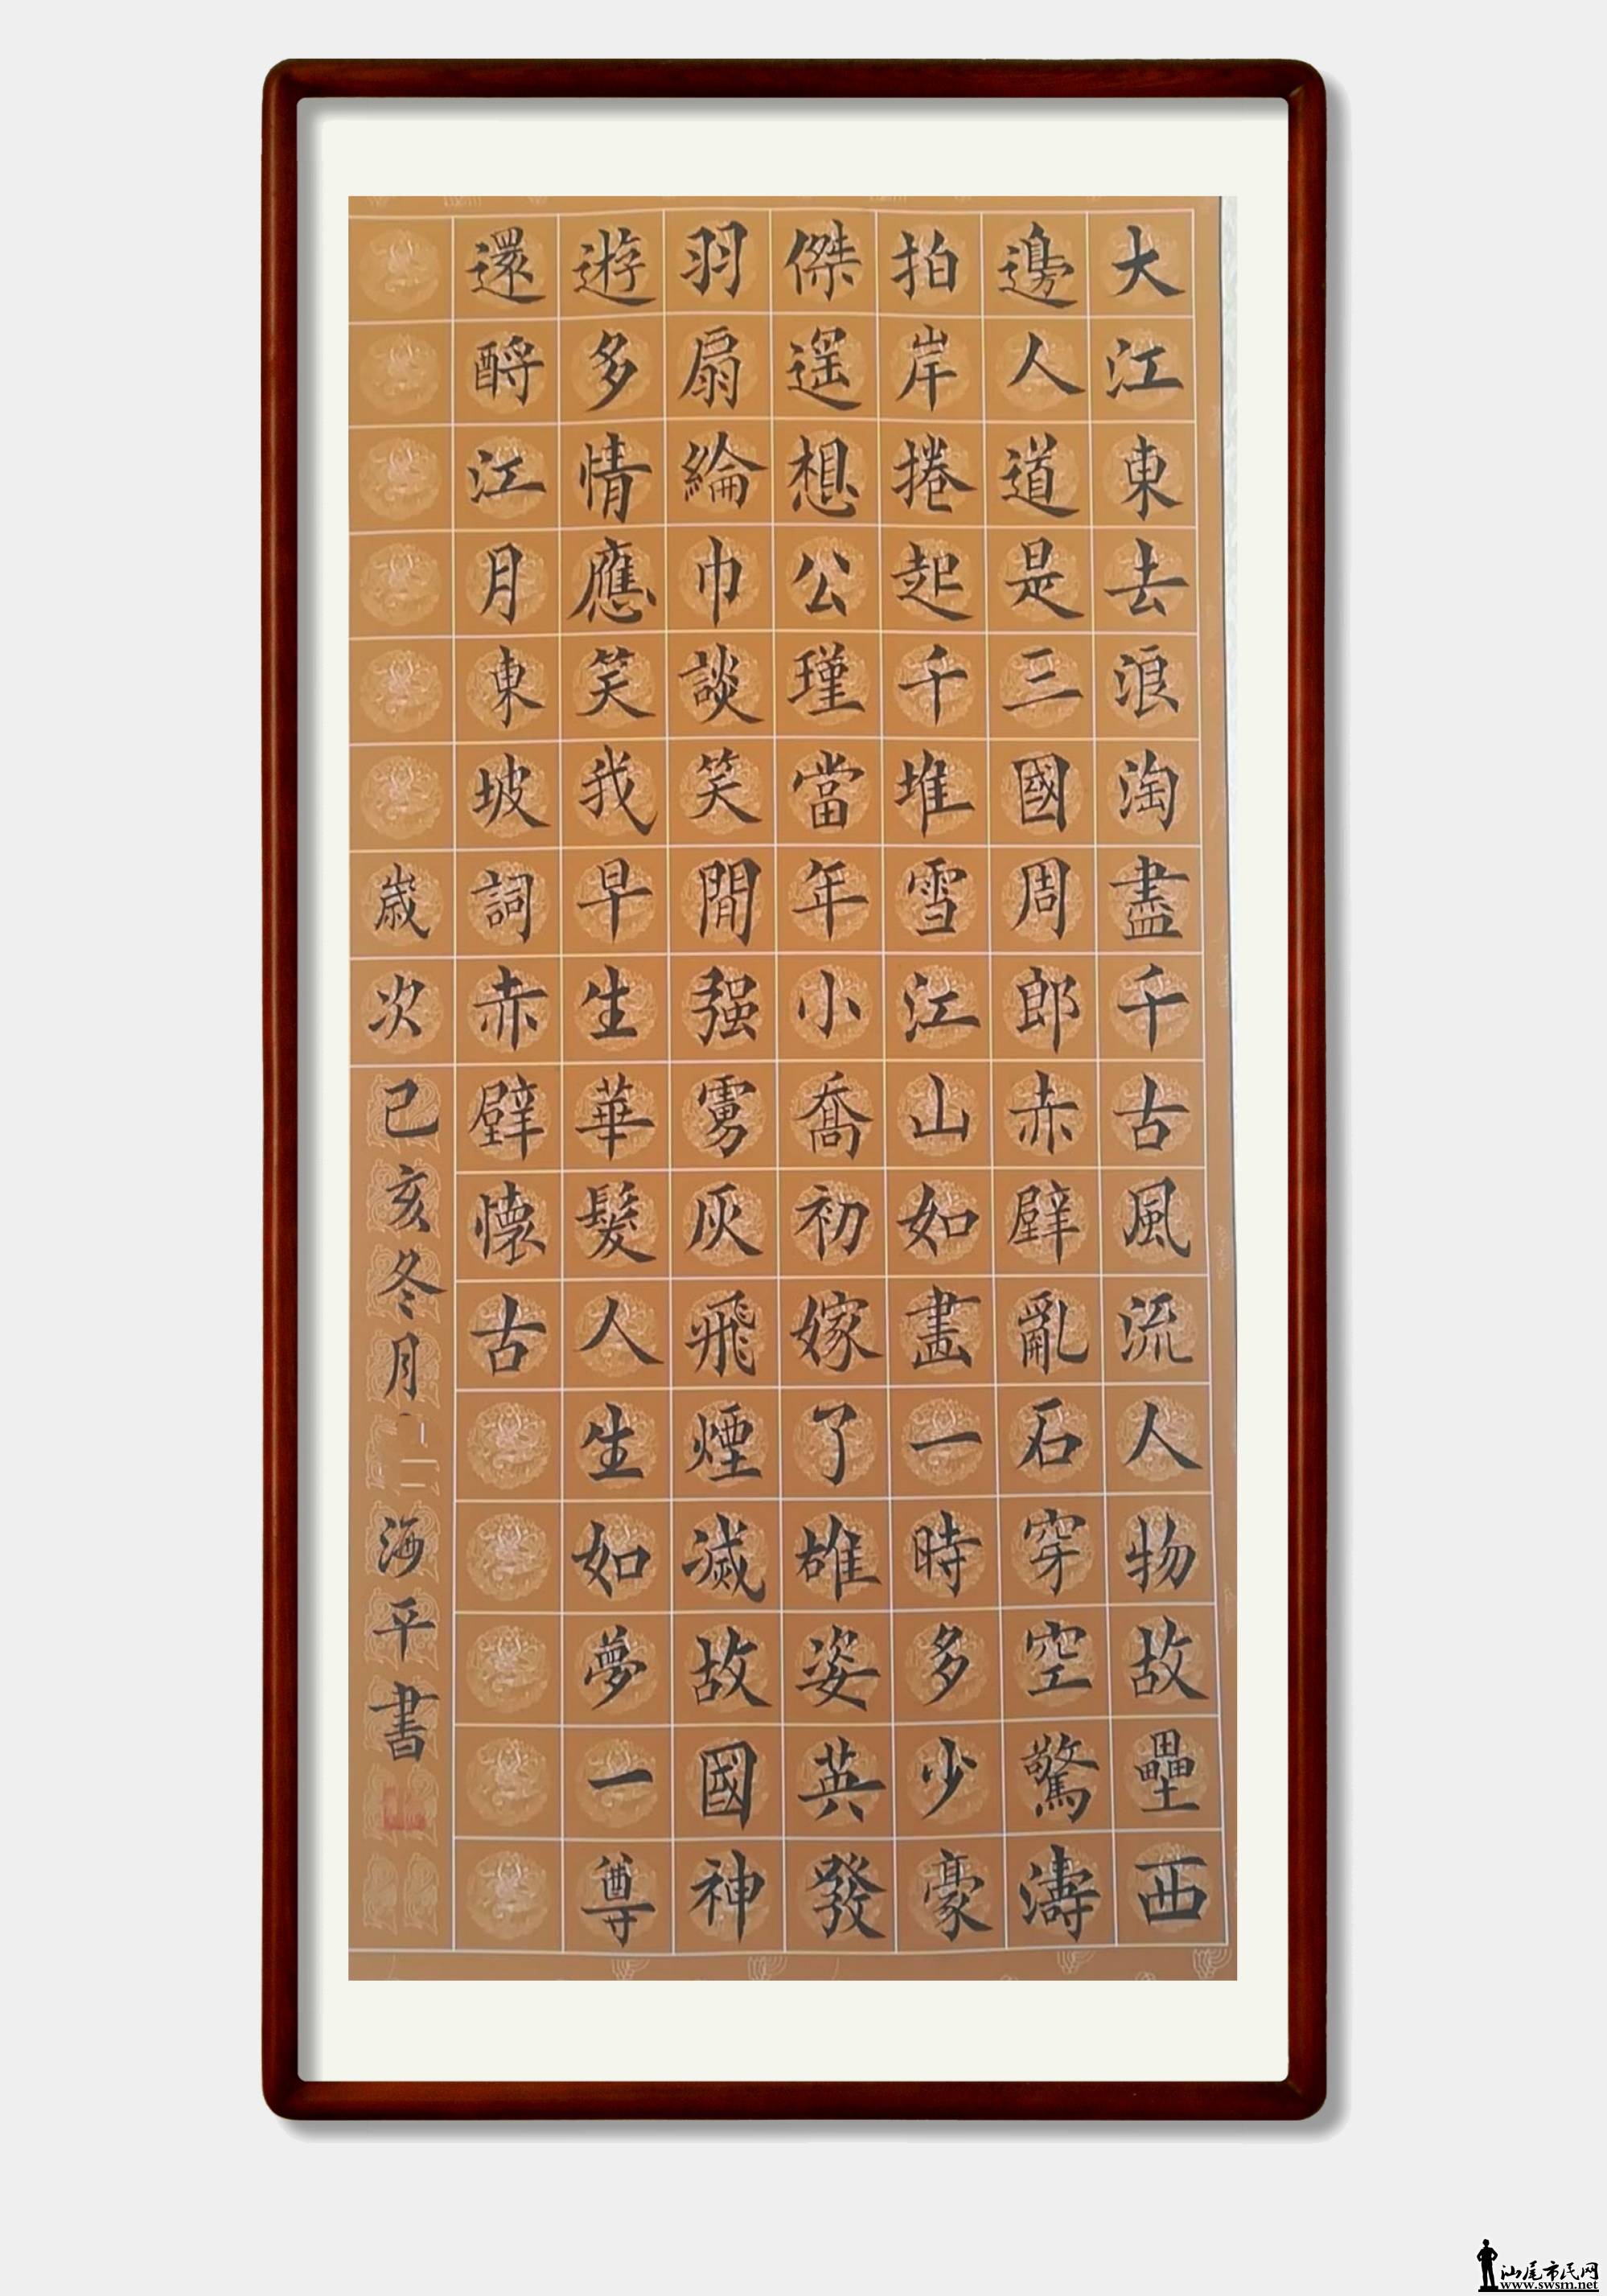 大江東去浪淘盡千古風流人物故壘西
邊人道是三國周郎赤壁亂石穿空驚濤
拍岸捲起千堆雪江山如畫一時多少豪
傑遥想公瑾當年小喬初嫁了雄姿英發
羽扇綸巾談笑閒强灰飛煙滅故國神
遊多情應笑我早生華髮人生如夢一尊
還酹江月東坡詞赤壁懷古
歲次己亥冬月海平書
汕尾市民网
www.swsm.net